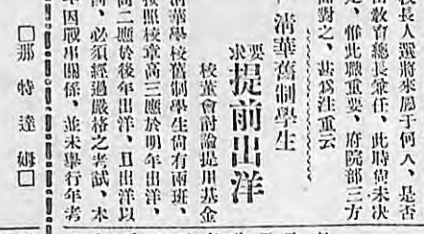 校長人選將來屬于何人、是否
由教育總長兼任、此時尙未決
定、惟此職重要、府院部三方
面對之、甚爲注重云
淸華舊制學生
要求
提前出洋
校董會討論提用基金
淸華學校舊制學生尙有兩班、
按照校章高三應於明年出洋、
高二應於後年出洋、且出洋以
前、必須經過嚴格之考試、本
年因戰事關係、並未舉行年考
□那特達㛂□